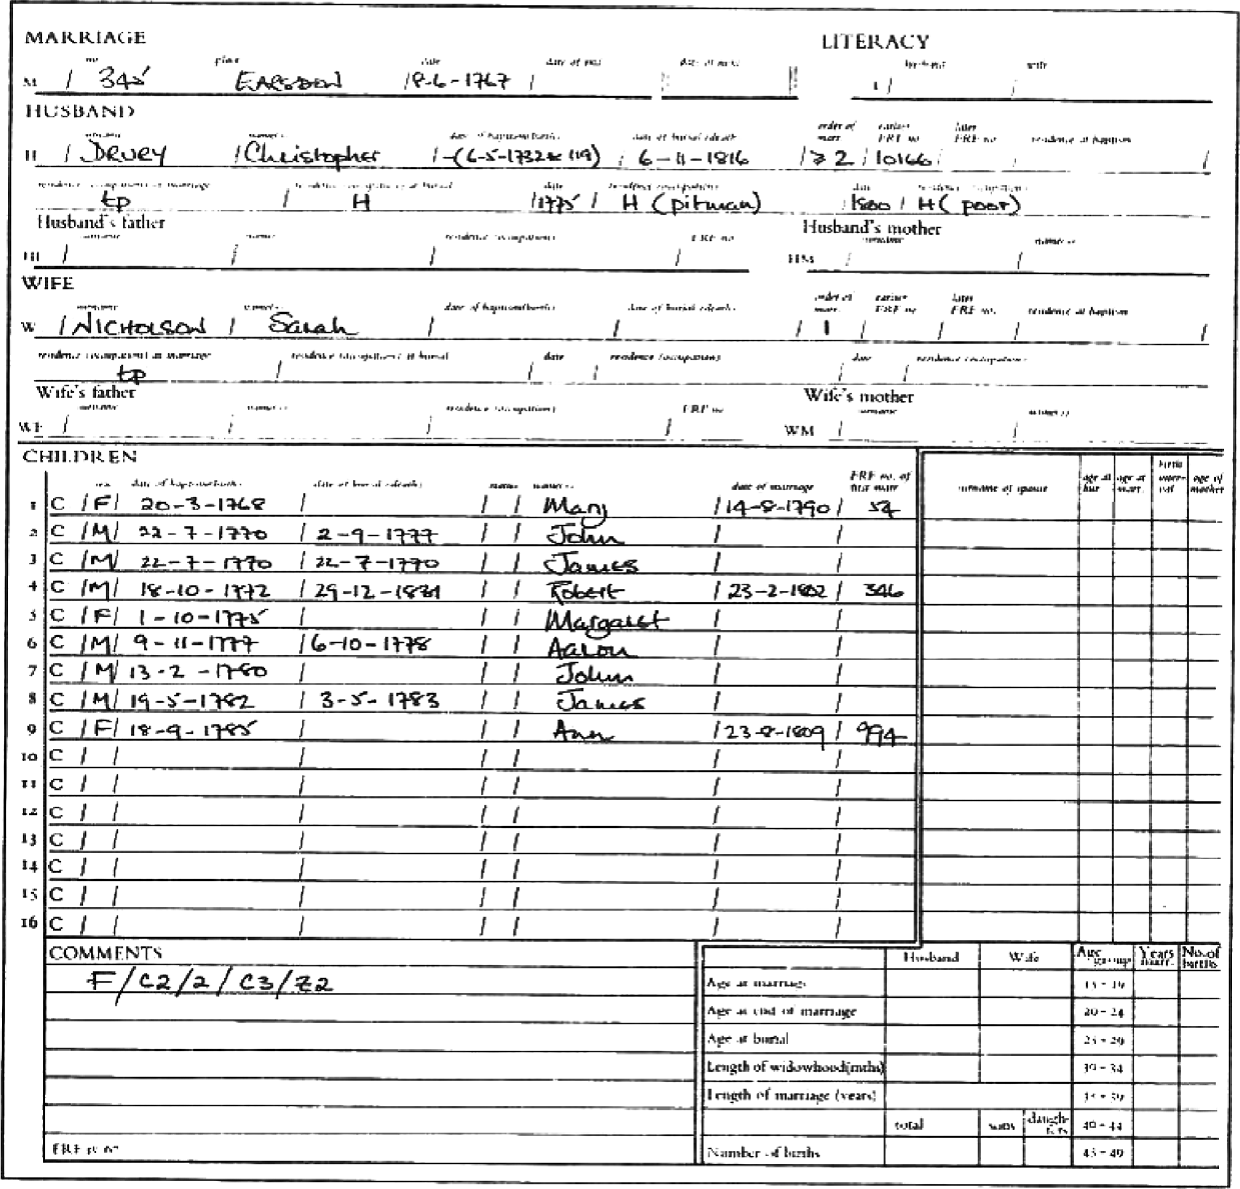 MARRIAGE LITERACY
no place date date of end date of next husband wife
M / 345 EARSDON / 8-6-1767 / L /
HUSBAND
surname name/s date of baptism(birth) date of burial (death) order of marr. earlier FRF no later FRF no residence at baptism
H / DRUEY / Christopher / -(6-5-1732 119) / 6-11-1816 / ≥2 / 10166 / /
residence (occupation) at marriage residence (occupation) at burial date residence (occupation) date residence (occupation)
tp / H / 1775 / H (pitman) / 1800 / H (poor)
Husband's father Husband's mother
surname name/s residence (occupation) FRF no surname name/s
HF / / / / HM / /
WIFE
surname name/s date of baptism(birth) date of burial (death) order of marr. earlier FRF no later FRF no. residence at baptism
W / NICHOLSON / Sarah / / / 1 / / / /
residence (occupation) at marriage residence (occupation) at burial date residence (occupation) date residence (occupation)
tp / / / / /
Wife's father Wife's mother
surname name/s residence (occupation) FRF no surname name/s
WF / / / / WM / /
CHILDREN
sex date of baptism(birth) date of burial (death) status name/s date of marriage FRF no. of first marr surname of spouse age at bur age at marr. birth interval age of mother
1 C / F / 20-3-1768 / / / Mary / 14-8-1790 / 54
2 C / M / 22-7-1770 / 2-9-1777 / / John / /
3 C / M / 22-7-1770 / 22-7-1770 / / James / /
4 C / M / 18-10-1772 / 29-12-1831 / / Robert / 23-2-1802 / 346
5 C / F / 1-10-1775 / / / Margaret / /
6 C / M / 9-11-1777 / 6-10-1778 / / Aaron / /
7 C / M / 13-2-1780 / / / John / /
8 C / M / 19-5-1782 / 3-5-1783 / / James / /
9 C / F / 18-9-1785 / / / Ann / 23-8-1809 / 994
10 C / / / / / / /
11 C / / / / / / /
12 C / / / / / / /
13 C / / / / / / /
14 C / / / / / / /
15 C / / / / / / /
16 C / / / / / / /
COMMENTS Husband Wife Age group Years marr. No. of births
F/C2/2/C3/Z2
Age at marriage 15 - 19
Age at end of marriage 20 - 24
Age at burial 25 - 29
Length of widowhood(mths) 30 - 34
Length of marriage (years) 35 - 39
total sons daughters 40 - 44
FRF Number of births 45 - 49